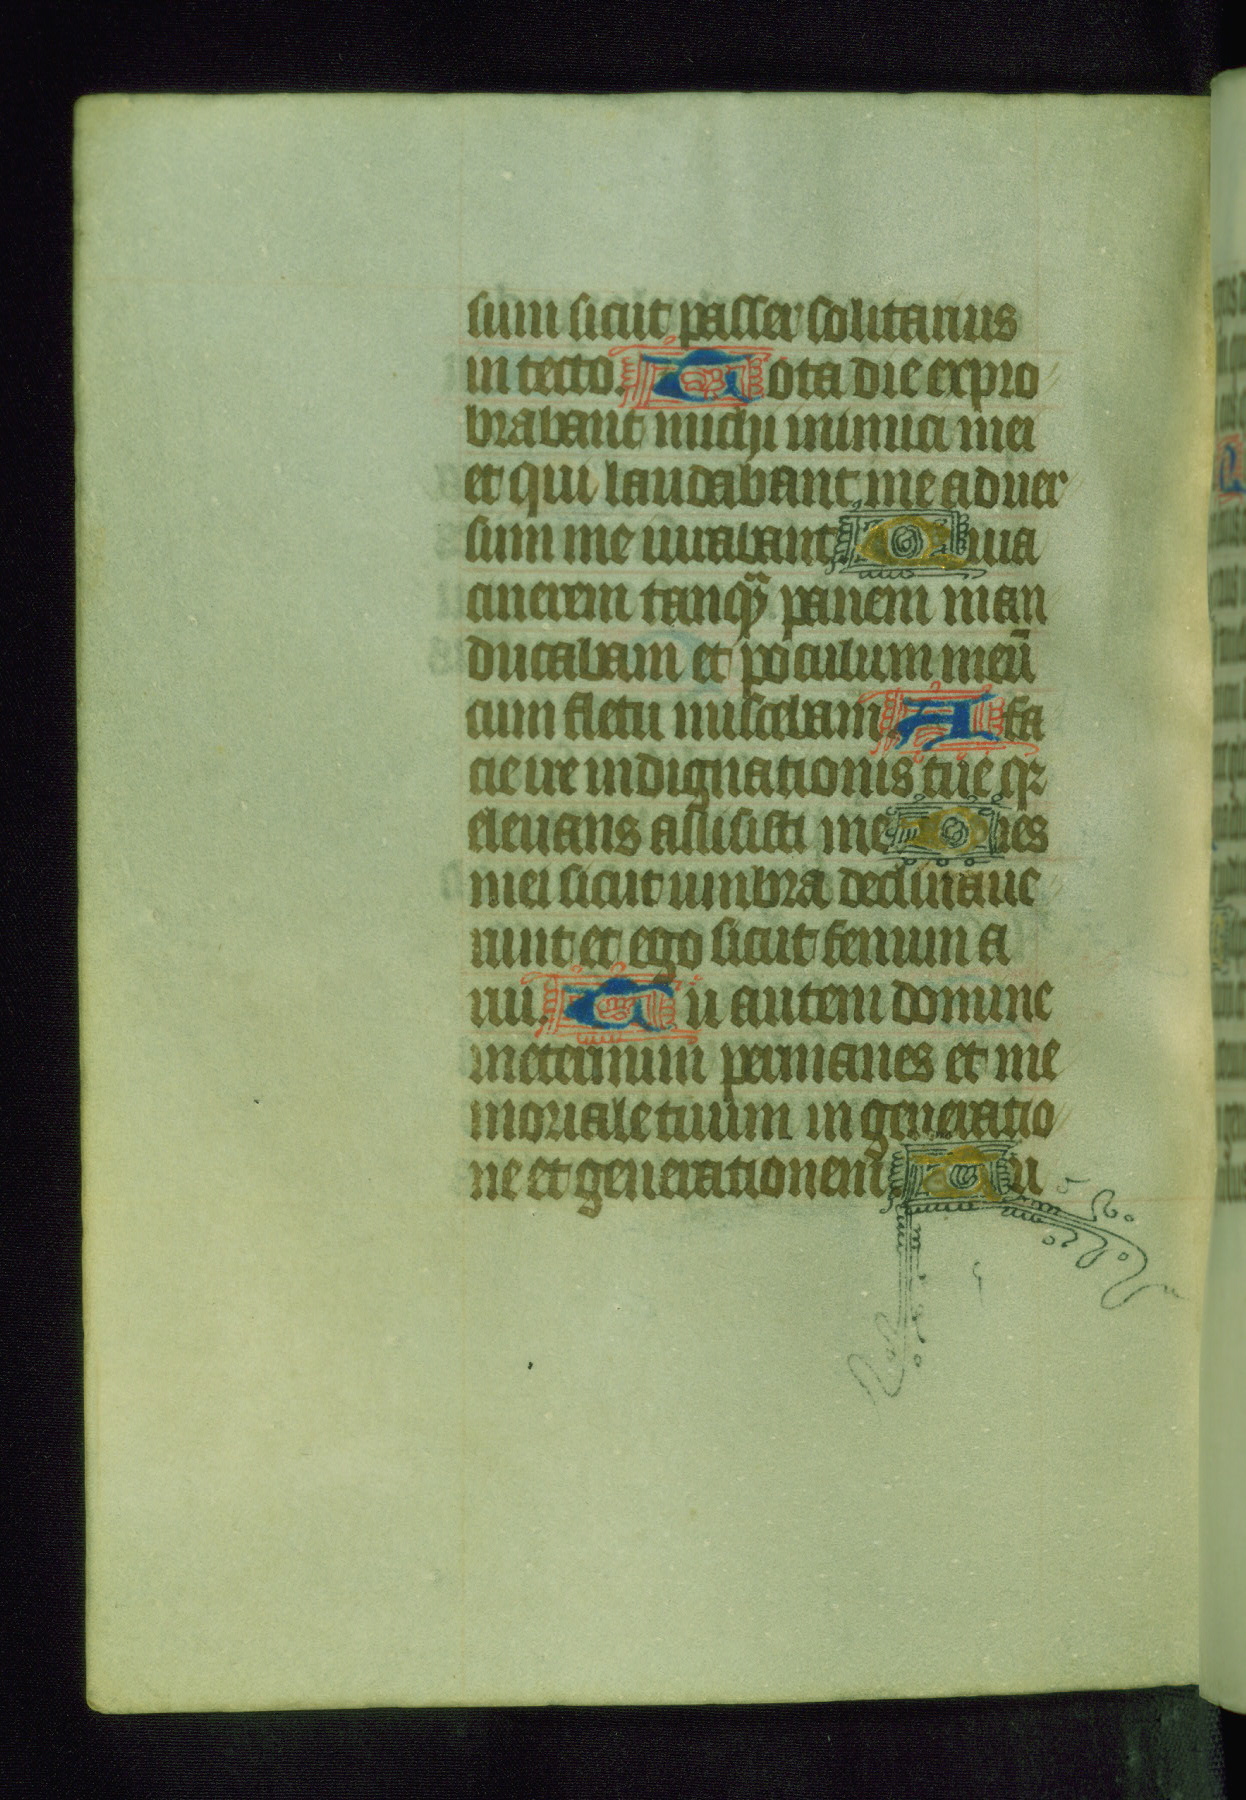 sum sicut passer solitarius
in tecto. Tota die expro
brabant michi inimici mei
et qui laudabant me aduer
sum me iurabant Quia
cinerem tanq̃ panem man
ducabam et poculum meū
cum fletu miscebam. A fa
cie ire indignationis tue qꝛ
eleuans alisisti me Dies
mei sicut umbra declinaue
runt et ego sicut fenum a
rui. Tu autem domine
ineternum permanes et me
moriale tuum in generatio
ne et generationem Tu